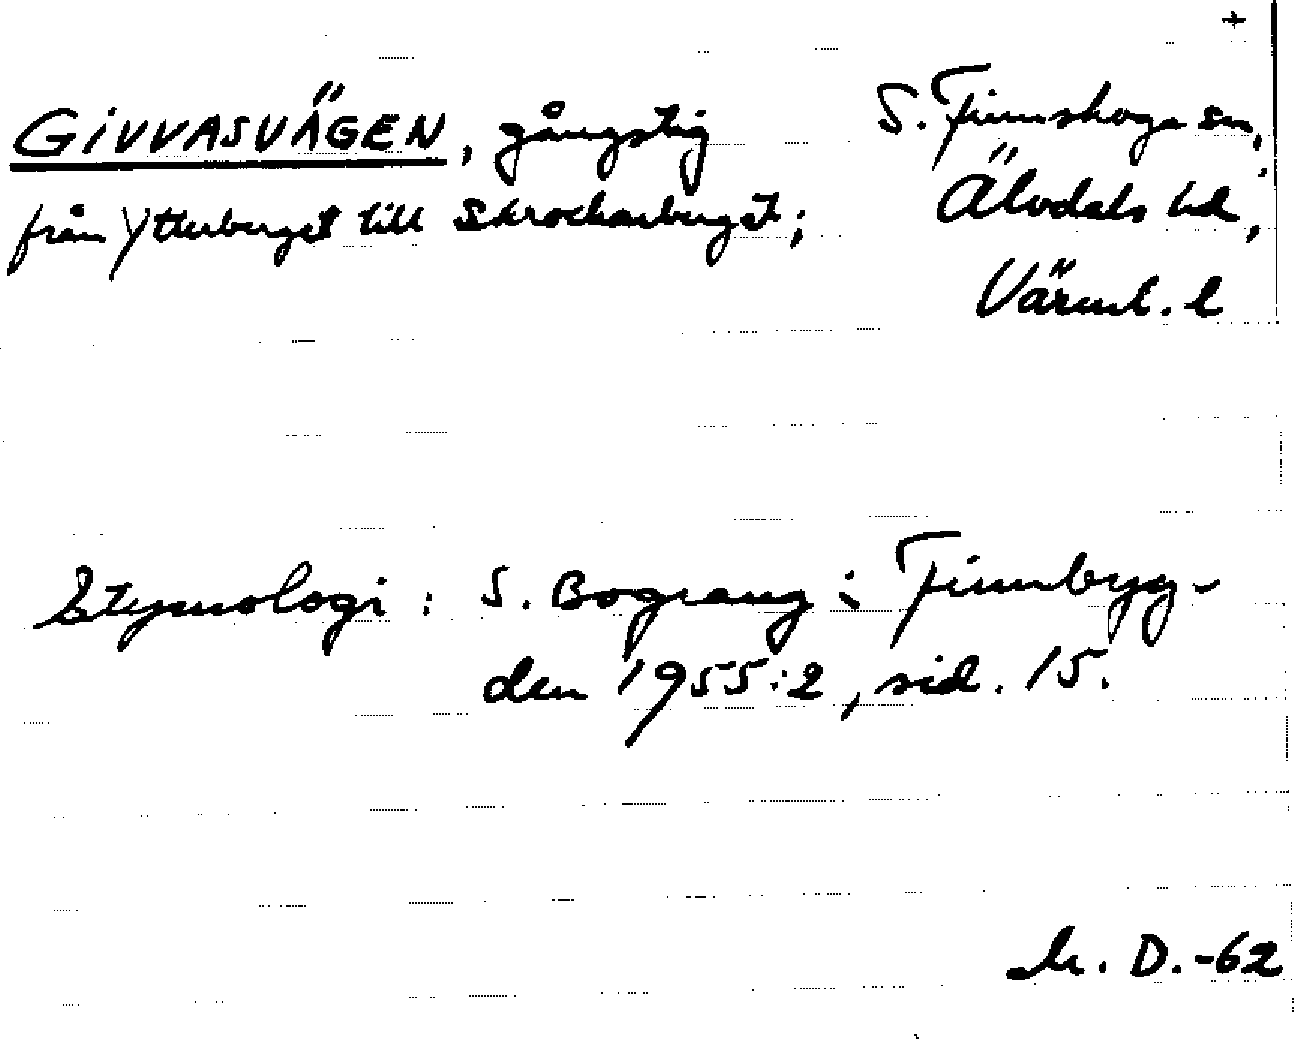 +
GIVVASVÄGEN, gångstig
från Ytterberget till Skrockarberget;
S. Finnskoga sn,
Älvdals hd,
Värml. l
Etymologi: S. Bograng i Finnbyg-
den 1955:2, sid. 15.
M. D. -62